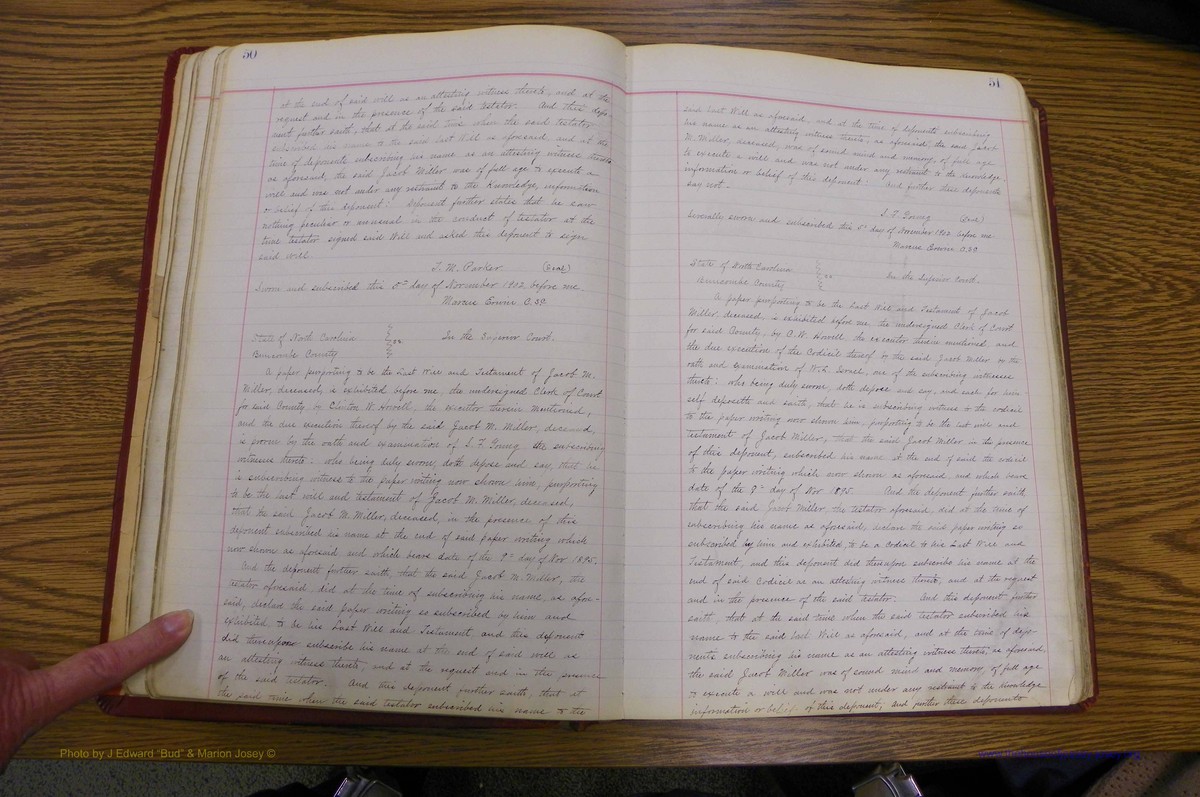 50
at the end of said will as an attesting witness thereto, and at the
request and in the presence of the said testator. And this depo-
nent further saith, that at the said time when the said testator
subscribed his name to the said last Will as aforesaid and at the
time of deponents subscribing his name as an attesting witness thereto
as aforesaid, the said Jacob Miller was of full age to execute a
will and was not under any restraint to the knowledge, information
or belief of this deponent: Deponent further states that he saw
nothing peculiar or unusual in the conduct of testator at the
time testator signed said Will and asked this deponent to sign
said will.
T. M. Parker (Seal)
Sworn and subscribed this 5th day of November 1902 before me
Marcus Erwin C.S.C.
State of North Carolina
Buncombe County } ss In the Superior Court.
A paper purporting to be the Last Will and Testament of Jacob M.
Miller, deceased, is exhibited before me, the undersigned Clerk of Court
for said County, by Clinton W. Howell, the executor therein mentioned,
and the due execution thereof by the said Jacob M. Miller, deceased,
is proven by the oath and examination of S. F. Young the subscribing
witness thereto: who being duly sworn, doth depose and say, that he
is subscribing witness to the paper writing now shown him, purporting
to be the last will and testament of Jacob M. Miller, deceased,
that the said Jacob M. Miller, deceased, in the presence of this
deponent subscribed his name at the end of said paper writing which
now shown as aforesaid and which bears date of the 9th day of Nov 1895.
And the deponent further saith, that the said Jacob M. Miller, the
testator aforesaid, did at the time of subscribing his name as afore-
said, declare the said paper writing so subscribed by him and
exhibited, to be his Last Will and Testament, and this deponent
did thereupon subscribe his name at the end of said will as
an attesting witness thereto, and at the request and in the presence
of the said testator. And this deponent further saith, that at
the said time when the said testator subscribed his name to the
51
said Last Will as aforesaid, and at the time of deponents subscribing
his name as an attesting witness thereto, as aforesaid, the said Jacob
M. Miller, deceased, was of sound mind and memory, of full age
to execute a will and was not under any restraint to the knowledge
information or belief of this deponent: And further these deponents
say not.
S. F. Young (Seal)
Severally sworn and subscribed this 5th day of November 1902 before me
Marcus Erwin C.S.C.
State of North Carolina
Buncombe County } ss In the Superior Court.
A paper purporting to be the Last Will and Testament of Jacob
Miller, deceased, is exhibited before me, the undersigned Clerk of Court
for said County, by C. W. Howell, the executor therein mentioned and
the due execution of the Codicil thereof by the said Jacob Miller by the
oath and examination of W. C. Israel, one of the subscribing witnesses
thereto: who being duly sworn, doth depose and say, and each for him-
self deposeth and saith, that he is subscribing witness to the codicil
to the paper writing now shown him, purporting to be the last will and
testament of Jacob Miller, that the said Jacob Miller in the presence
of this deponent, subscribed his name at the end of said the codicil
to the paper writing which now shown as aforesaid and which bears
date of the 9th day of Nov 1895. And the deponent further saith
that the said Jacob Miller, the testator aforesaid, did at the time of
subscribing his name as aforesaid, declare the said paper writing so
subscribed by him and exhibited, to be a Codicil to his Last Will and
Testament, and this deponent did thereupon subscribe his name at the
end of said Codicil as an attesting witness thereto, and at the request
and in the presence of the said testator. And this deponent further
saith, that at the said time when the said testator subscribed his
name to the said Last Will as aforesaid, and at the time of depo-
nents subscribing his name as an attesting witness thereto, as aforesaid,
the said Jacob Miller was of sound mind and memory, of full age
to execute a will and was not under any restraint to the knowledge
information or belief of this deponent; And further these deponents
Photo by J Edward "Bud" & Marion Josey ©